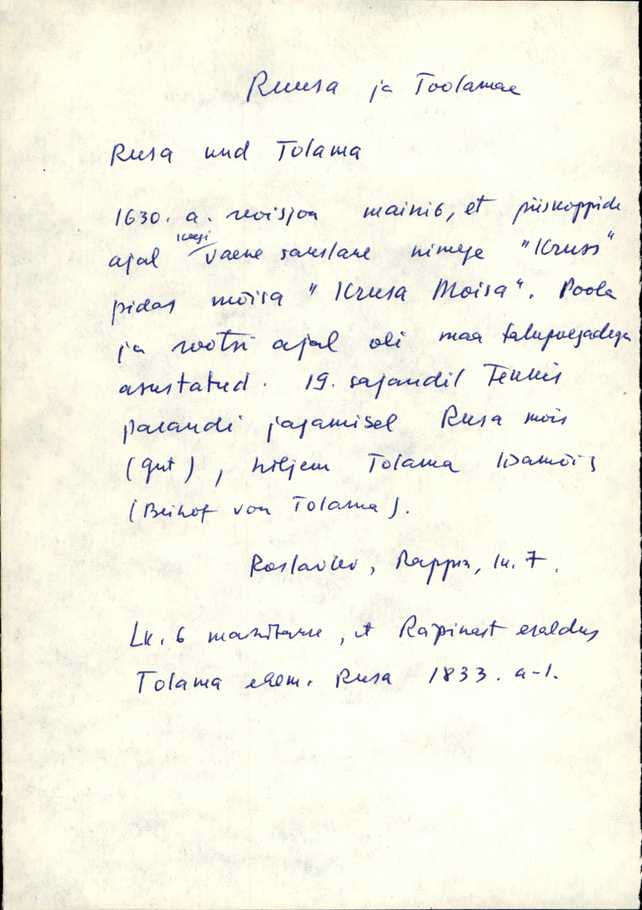 Ruusa ja Toolamaa
Rusa und Tolama
1630. a. revisjon mainib, et piiskoppide
ajal keegi vaene sakslane nimega "Kruss"
pidas mõisa "Krusa Moisa". Poola
ja rootsi ajal oli maa talupoegadega
asustatud. 19. sajandil tekkis
parandi jagamisel Rusa mõis
(gut), hiljem Tolama
(Beihof von Tolama).
Rappin, lk. 7.
Lk. 6 et Räpinast eraldus
Tolama Rusa 1833. a-l.